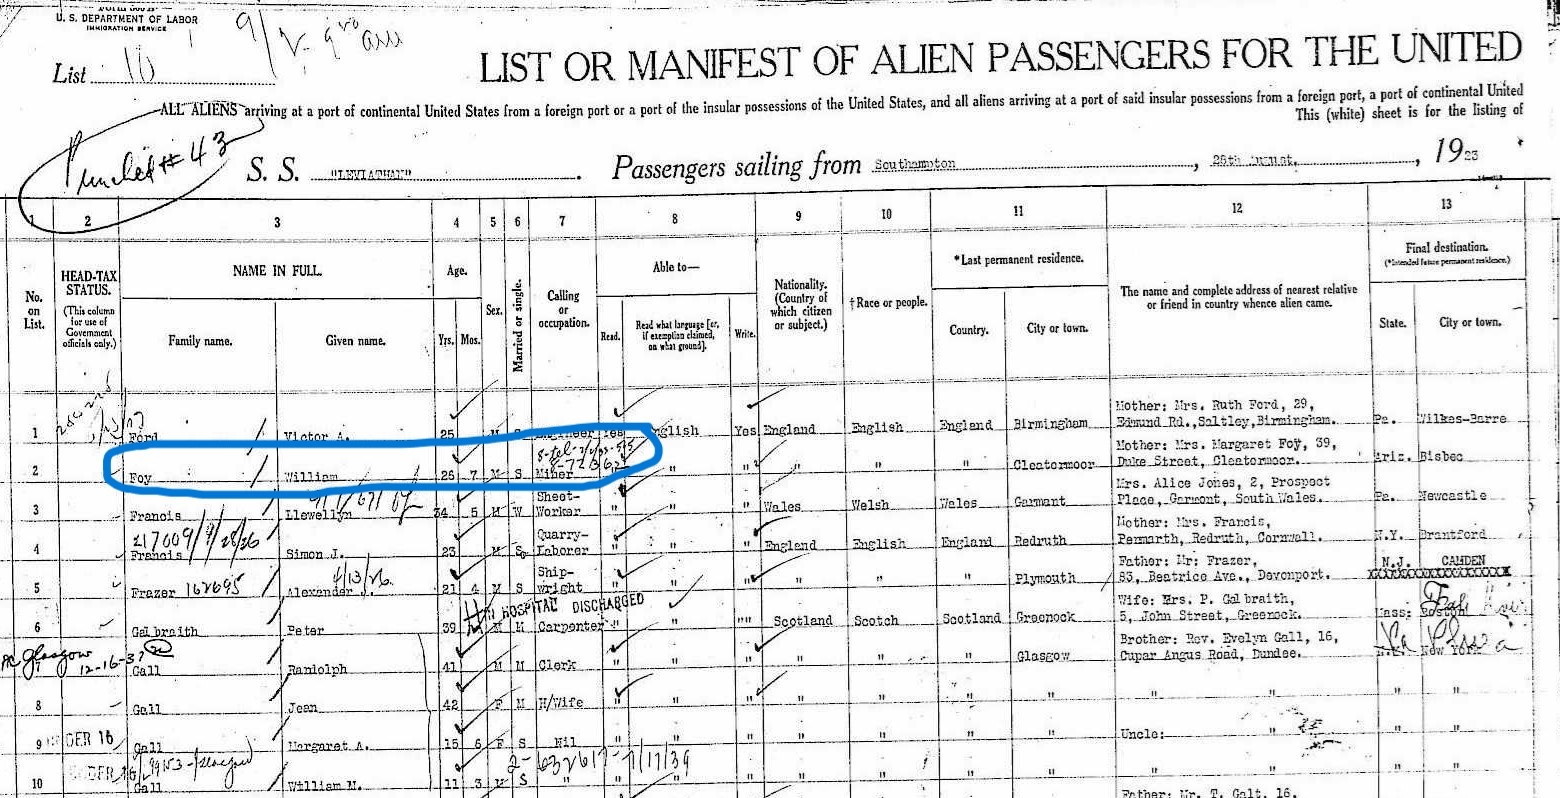 U. S. DEPARTMENT OF LABOR
IMMIGRATION SERVICE
List 10
LIST OR MANIFEST OF ALIEN PASSENGERS FOR THE UNITED
ALL ALIENS arriving at a port of continental United States from a foreign port or a port of the insular possessions of the United States, and all aliens arriving at a port of said insular possessions from a foreign port, a port of continental United
This (white) sheet is for the listing of
#43
S. S. "LEVIATHAN". Passengers sailing from Southampton, 28th August, 1923
1 2 3 4 5 6 7 8 9 10 11 12 13
No. on List.
HEAD-TAX STATUS.
(This column for use of Government officials only.)
NAME IN FULL.
Family name.
Given name.
Age.
Yrs. Mos.
Sex.
Married or single.
Calling or occupation.
Able to—
Read.
Read what language [or, if exemption claimed, on what ground].
Write.
Nationality. (Country of which citizen or subject.)
†Race or people.
*Last permanent residence.
Country.
City or town.
The name and complete address of nearest relative or friend in country whence alien came.
Final destination.
(*Intended future permanent residence.)
State.
City or town.
Mother: Mrs. Ruth Ford, 29,
1 Ford Victor A. 25 M S Engineer Yes English Yes England English England Birmingham Edmund Rd., Saltley, Birmingham. Pa. Wilkes-Barre
Mother: Mrs. Margaret Foy, 39,
2 Foy William 26 7 M S Miner " " " " " " Cleatormoor Duke Street, Cleatormoor. Ariz. Bisbec
Sheet- Mrs. Alice Jones, 2, Prospect
3 Francis Llewellyn 34 5 M W Worker " " " Wales Welsh Wales Garmant Place, Garmont, South Wales. Pa. Newcastle
217009 9/28/26 Quarry- Mother: Mrs. Francis,
4 Francis Simon J. 23 M S Laborer " " " England English England Redruth Penmarth, Redruth, Cornwall. N.Y. Brantford
4/13/26 Ship- Father: Mr: Frazer, N.J. CAMDEN
5 Frazer 162695 Alexander J. 21 4 M S wright " " " " " " Plymouth 83, Beatrice Ave., Devonport. XXXXXXXXXXXXXXXXX
IN HOSPITAL DISCHARGED Wife: Mrs. P. Galbraith,
6 Galbraith Peter 39 M M Carpenter " " "" Scotland Scotch Scotland Greenock 5, John Street, Greenock. Mass: Boston
Glasgow 12-16-37 Brother: Rev. Evelyn Gall, 16,
7 Gall Randolph 41 M M Clerk " " " " " " Glasgow Cupar Angus Road, Dundee. New York
8 Gall Jean 42 F M H/Wife " " " " " " " " " " "
9 UNDER 16 Gall Margaret A. 15 6 F S Nil " " " " " " " Uncle: " " "
2-632617-7/17/39
10 UNDER 16 Gall William M. 11 3 M S " " " " " " " " " " " "
Father: Mr. T. Galt, 16,